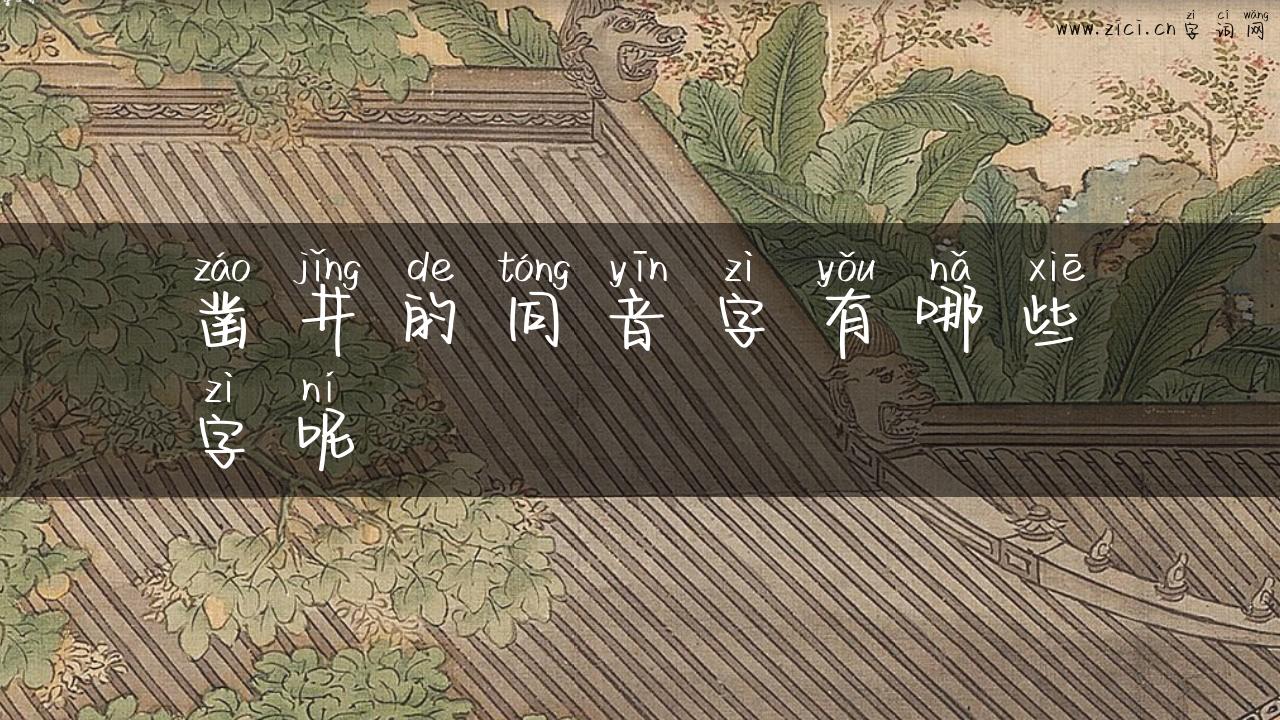 zì cí wǎng
www.zici.cn 字词网
záo jǐng de tóng yīn zì yǒu nǎ xiē
凿井的同音字有哪些
zì ní
字呢